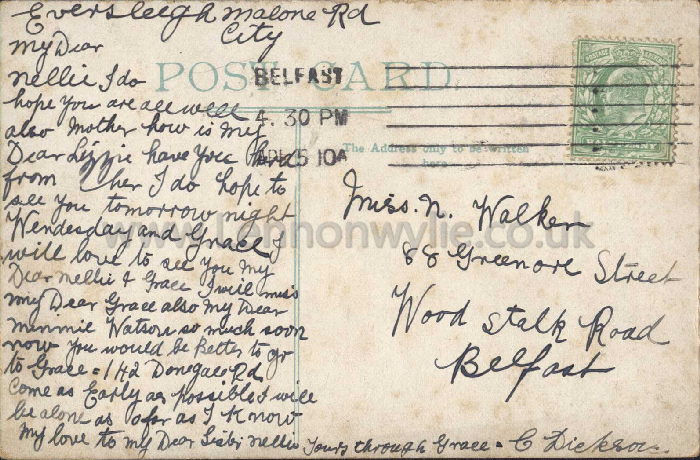 Eversleigh Malone Rd
City
My Dear
Nellie I do
hope you are all well
also Mother how is my
Dear Lizzie have you heard
from her I do hope to
see you tomorrow night
Wendesday and Grace I
will love to see you my
Dear Nellie & Grace I will miss
my Dear Grace also my Dear
Minnie Watson so much soon
now you would be better to go
to Grace = 142 Donegall Rd
Come as Early as possible I will
be alone as far as I know
My love to my Dear Sister Nellie
Yours through Grace = C Dickson
POST CARD.
BELFAST
4.30 PM
5 10A
The Address only to be written
here
Miss. N. Walker
88 Greenore Street
Wood stalk Road
Belfast
www.Lennonwylie.co.uk